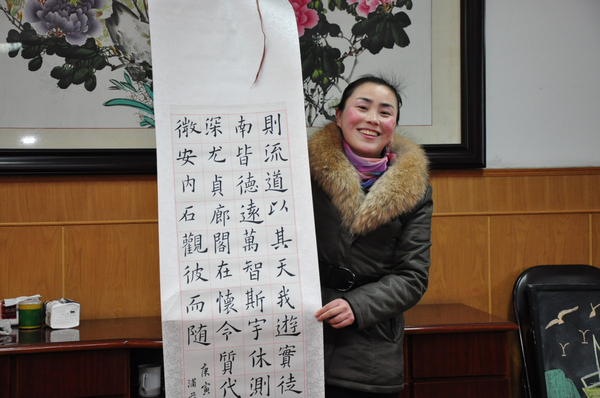 則流道以其天我遊實徒
南皆德遠萬智斯宇休測
深尤貞廊閣在懷令質代
微安內石觀彼而随
庚寅